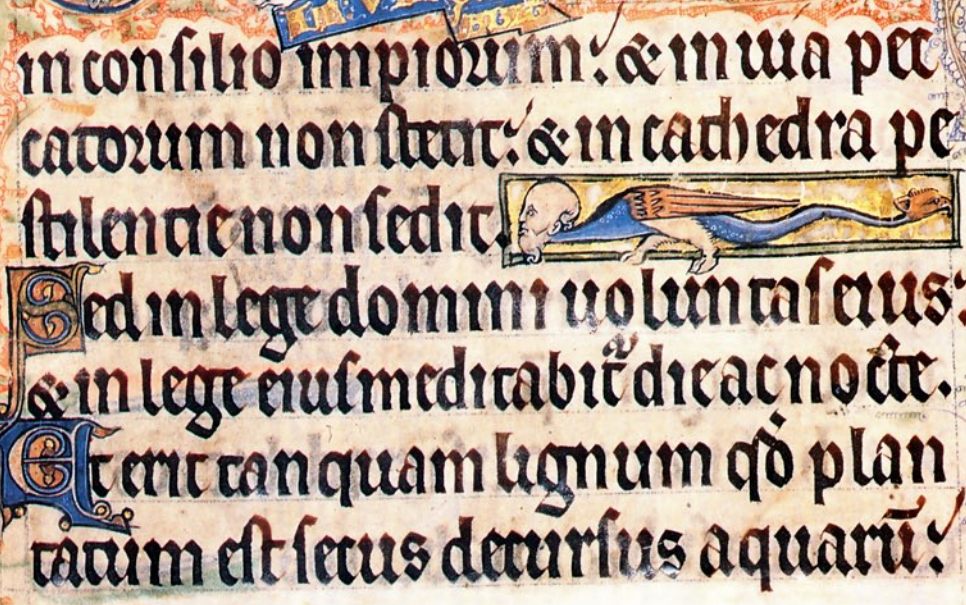 in consilio impiorum: & in uia pec
catorum non stetit: & in cathedra pe
stilentie non sedit.
Sed in lege domini uoluntas eius:
& in lege eius meditabit᷑ die ac nocte.
Et erit tanquam lignum qd̓ plan
tatum est secus decursus aquarū: